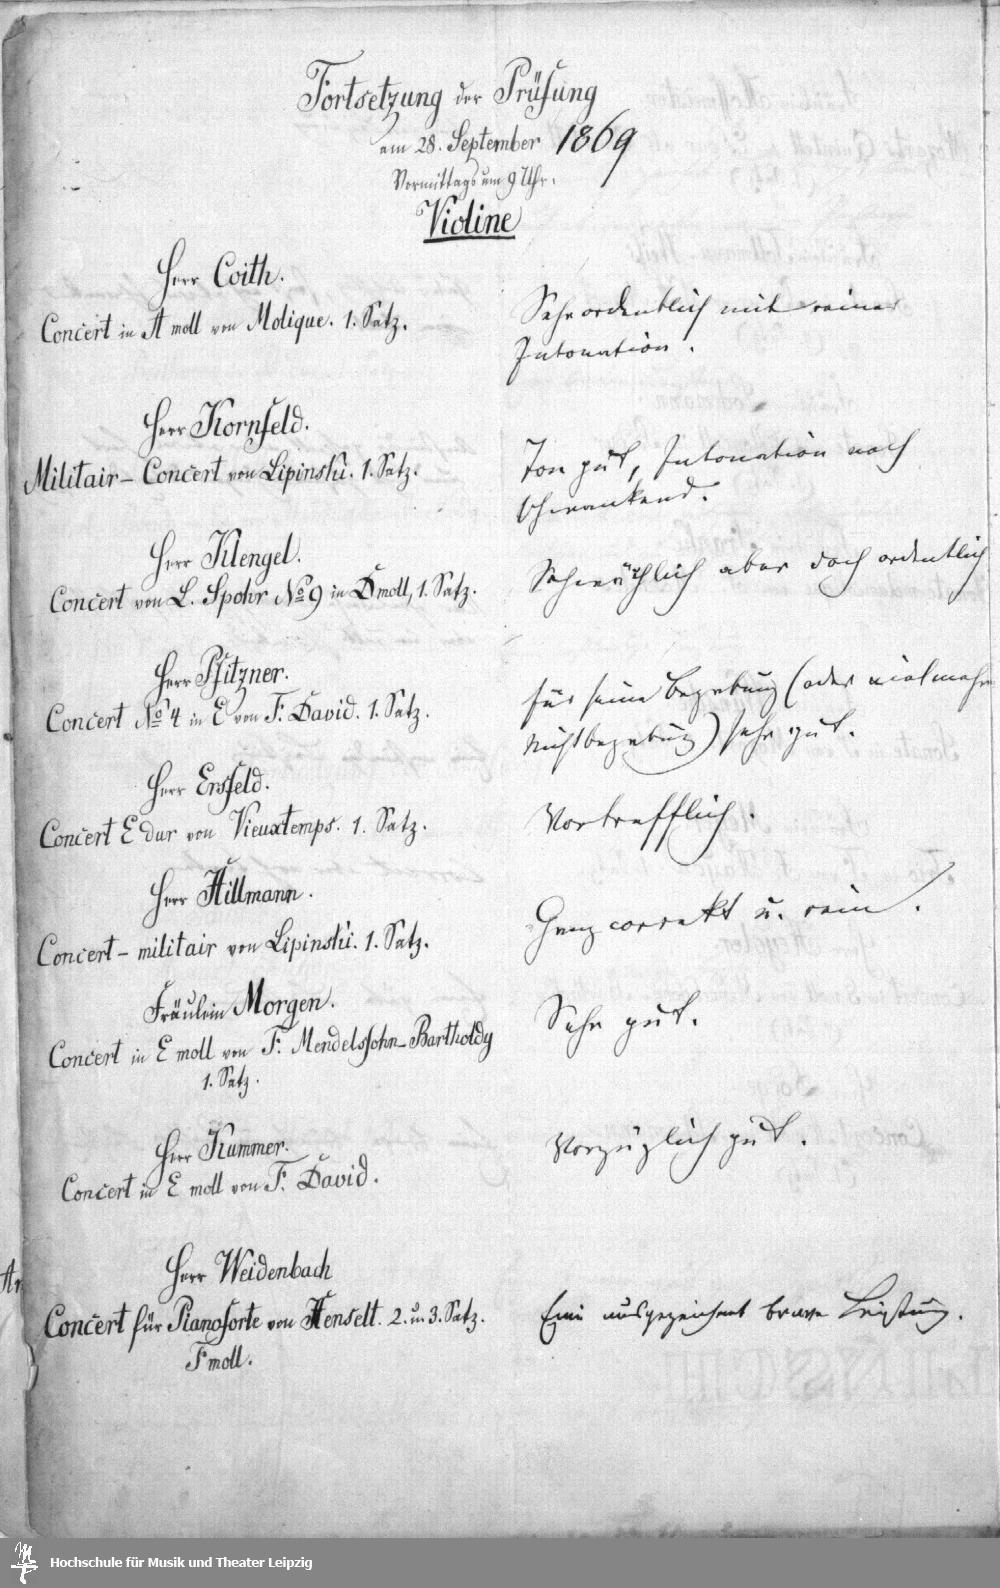 Fortsetzung der Prüfung
am 28. September 1869
Vormittags um 9 Uhr.
Violine
Herr Coith.
Concert in A moll von Molique. 1. Satz.
Sehr ordentlich mit reiner
Intonation.
Herr Kornfeld.
Militair-Concert von Lipinski. 1. Satz.
Ton gut, Intonation noch
schwankend.
Herr Klengel.
Concert von L. Spohr No 9 in D moll, 1. Satz.
Schwächlich aber doch ordentlich
Herr Pfitzner.
Concert No 4 in E von F. David. 1. Satz.
für seine Begabung (oder vielmehr
Nichtbegabung) sehr gut.
Herr Ersfeld.
Concert E dur von Vieuxtemps. 1. Satz.
Vortrefflich.
Herr Hillmann.
Concert-militair von Lipinski. 1. Satz.
Ganz correkt u. rein.
Fräulein Morgen.
Concert in E moll von F. Mendelssohn-Bartholdy
1. Satz.
Sehr gut.
Herr Kummer.
Concert in E moll von F. David.
Vorzüglich gut.
Herr Weidenbach
Concert für Pianoforte von Henselt. 2. u. 3. Satz.
F moll.
Eine ausgezeichnet brave Leistung.
Hochschule für Musik und Theater Leipzig